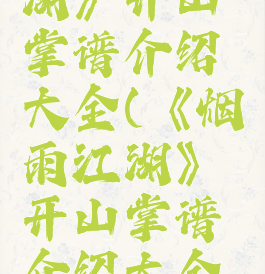 湖》开山
掌谱介绍
大全(《烟
雨江湖》
开山掌谱
介绍大全